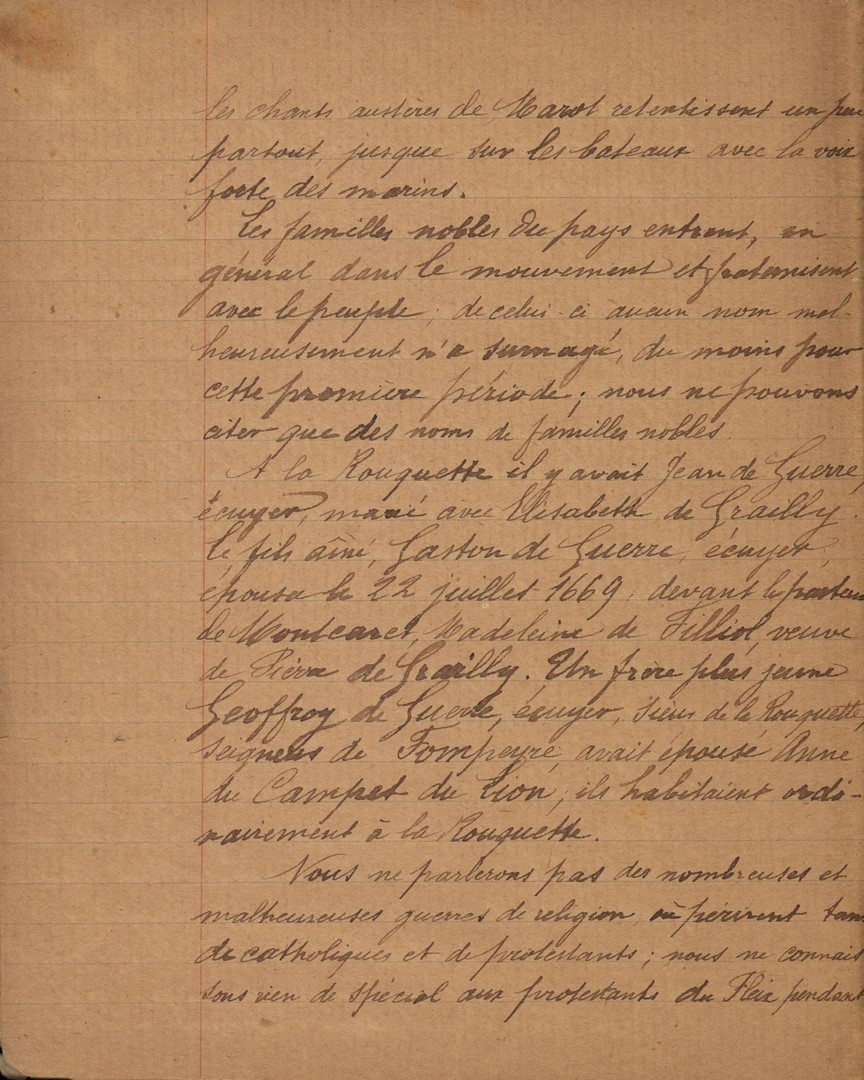 les chants austères de Marot retentissent un peu
partout, jusque sur les bateaux avec la voix
forte des marins.
Les familles nobles du pays entrent, en
général dans le mouvement et fraternisent
avec le peuple ; de celui-ci aucun nom mal-
heureusement n'a surnagé, du moins pour
cette première période ; nous ne pouvons
citer que des noms de familles nobles.
A la Rouquette il y avait Jean de Guerre,
écuyer, marié avec Elisabeth de Grailly.
Le fils aîné, Gaston de Guerre, écuyer,
épousa le 22 juillet 1669, devant le pasteur
de Montcaret, Madeleine de Filliol, veuve
de Pierre de Grailly. Un frère plus jeune
Geoffroy de Guerre, écuyer, sieur de la Rouquette,
seigneur de Fompeyre, avait épousé Anne
du Campet du Lion ; ils habitaient ordi-
nairement à la Rouquette.
Nous ne parlerons pas des nombreuses et
malheureuses guerres de religion, où périrent tant
de catholiques et de protestants ; nous ne connais
sons rien de spécial aux protestants du Fleix pendant